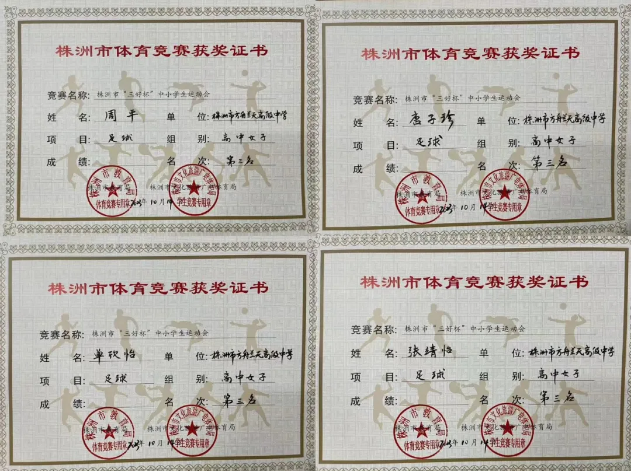 株洲市体育竞赛获奖证书
竞赛名称: 株洲市“三好杯”中小学生运动会
姓 名: 周平 单 位: 株洲市方舟兰天高级中学
项 目: 足球 组 别: 高中女子
成 绩: 名 次: 第三名
株洲市教育局
体育竞赛专用章
学生竞赛专用章
株洲市体育竞赛获奖证书
竞赛名称: 株洲市“三好杯”中小学生运动会
姓 名: 唐子珍 单 位: 株洲市方舟兰天高级中学
项 目: 足球 组 别: 高中女子
成 绩: 名 次: 第三名
株洲市教育局
体育竞赛专用章
学生竞赛专用章
株洲市体育竞赛获奖证书
竞赛名称: 株洲市“三好杯”中小学生运动会
姓 名: 单欣怡 单 位: 株洲市方舟兰天高级中学
项 目: 足球 组 别: 高中女子
成 绩: 名 次: 第三名
株洲市教育局
体育竞赛专用章
学生竞赛专用章
株洲市体育竞赛获奖证书
竞赛名称: 株洲市“三好杯”中小学生运动会
姓 名: 张靖怡 单 位: 株洲市方舟兰天高级中学
项 目: 足球 组 别: 高中女子
成 绩: 名 次: 第三名
株洲市教育局
体育竞赛专用章
学生竞赛专用章